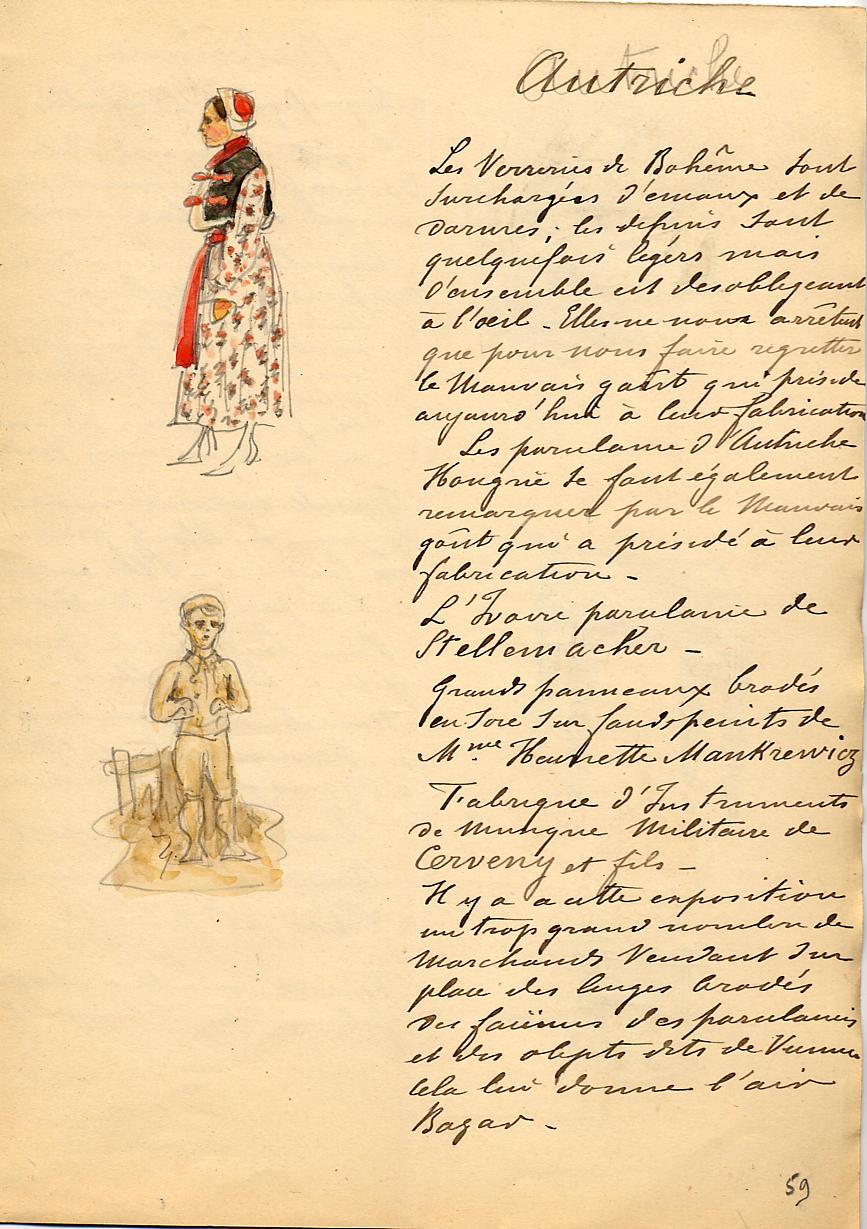 Autriche
Les Verreries de Bohême sont
surchargées d'emaux et de
dorures; les dessins sont
quelquefois légers mais
l'ensemble est desobligeant
à l'oeil - Elles ne nous arrêtent
que pour nous faire regretter
le Mauvais goût qui préside
aujourd'hui à leur fabrication
Les porcelaine d'Autriche
Hongrie se font également
remarquer par le Mauvais
goût qui a présidé à leur
fabrication -
L'Ivoire porcelaine de
Stellemacher -
Grands panneaux brodés
en soie sur fonds peints de
Mme Henriette Mankiewicz
Fabrique d'Instruments
de musique Militaire de
Cerveny et fils -
Il y a a cette exposition
un trop grand nombre de
Marchands Vendant sur
place des linges brodés
des faïences des porcelaines
et des objets dits de Vienne
cela lui donne l'air
Bazar -
59